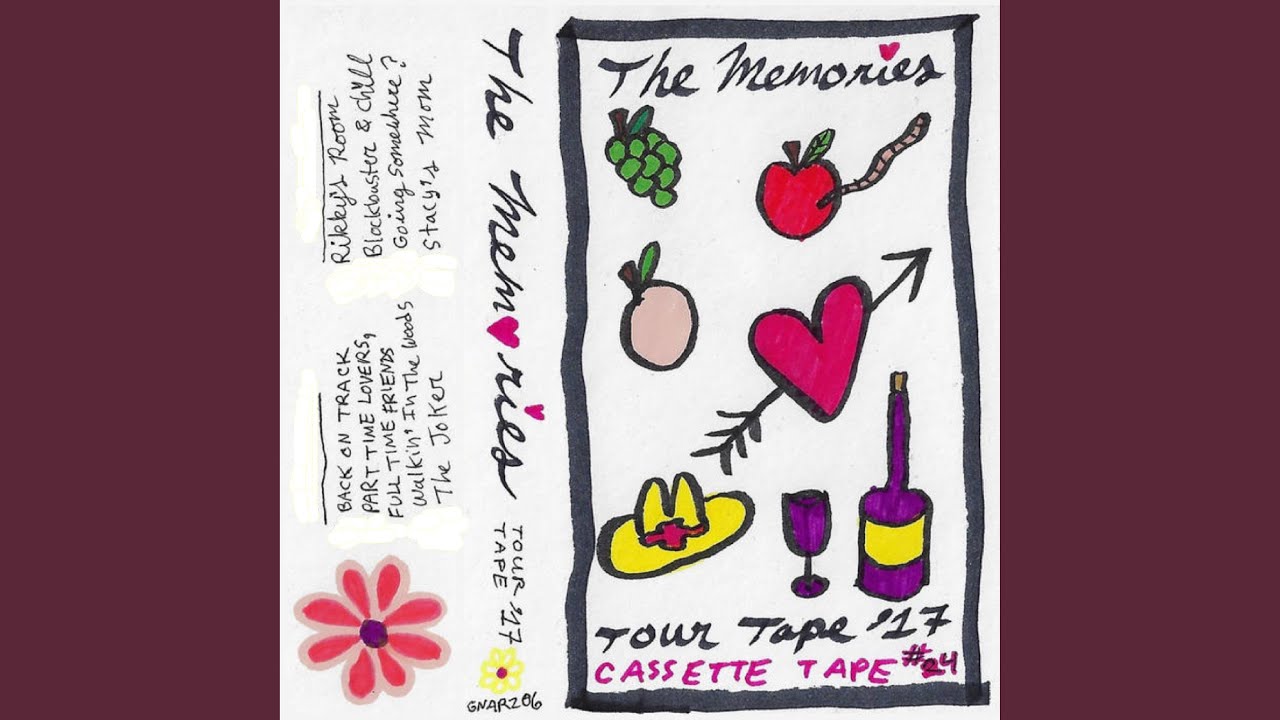 Rikky's Room
Blackbuster & Chill
Going Somewhere?
Stacy's Mom
BACK ON TRACK
PART TIME LOVERS,
FULL TIME FRIENDS
Walkin' In The Woods
The Joker
The Mem♥ries
TOUR '17
TAPE
GNARZ06
The Memories
Tour Tape '17
CASSETTE TAPE #24